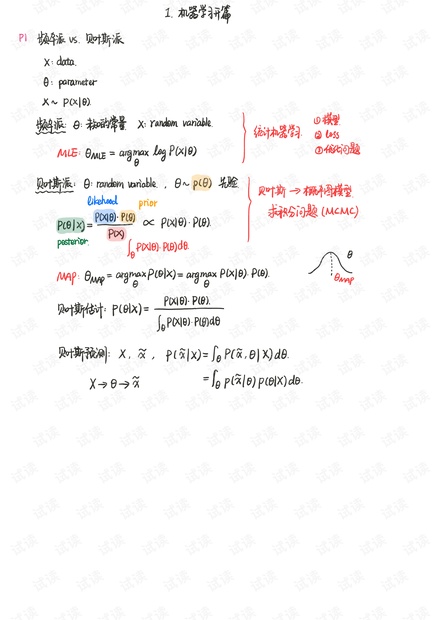 1. 机器学习开篇
P1 频率派 vs. 贝叶斯派
X: data.
θ: parameter
X ~ P(X|θ)
频率派: θ: 未知的常量 X: random variable.
MLE: θ_MLE = argmax_θ log P(X|θ)
统计机器学习 ① 模型
② loss
③ 优化问题
贝叶斯派: θ: random variable. , θ ~ p(θ) 先验
likelihood prior
P(θ|X) = P(X|θ)·P(θ) / P(X) ∝ P(X|θ)·P(θ).
posterior. ∫_θ P(X|θ)·P(θ)dθ.
贝叶斯 → 概率图模型.
求积分问题 (MCMC)
MAP: θ_MAP = argmax_θ P(θ|X) = argmax_θ P(X|θ)·P(θ).
θ
θ_MAP
贝叶斯估计: P(θ|X) = P(X|θ)·P(θ). / ∫_θ P(X|θ)·P(θ)dθ
贝叶斯预测: X, x̃, P(x̃|X) = ∫_θ P(x̃,θ|X)dθ.
X → θ → x̃ = ∫_θ p(x̃|θ) p(θ|X)dθ.
试读